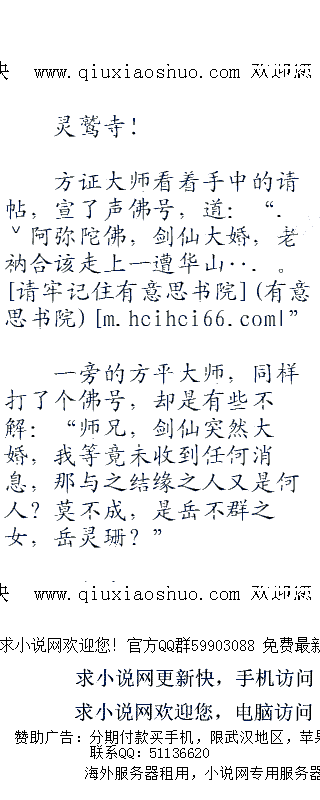 快 www.qiuxiaoshuo.com 欢迎您
灵鹫寺！
方证大师看着手中的请
帖，宣了声佛号，道：“.
ˇ阿弥陀佛，剑仙大婚，老
衲合该走上一遭华山··．。
[请牢记住有意思书院](有意
思书院)[m.hcihci66.com|”
一旁的方平大师，同样
打了个佛号，却是有些不
解：“师兄，剑仙突然大
婚，我等竟未收到任何消
息，那与之结缘之人又是何
人？莫不成，是岳不群之
女，岳灵珊？”
快 www.qiuxiaoshuo.com 欢迎您
求小说网欢迎您！官方QQ群59903088 免费最新
求小说网更新快，手机访问
求小说网欢迎您，电脑访问
赞助广告：分期付款买手机，限武汉地区，苹果
联系QQ：51136620
海外服务器租用，小说网专用服务器